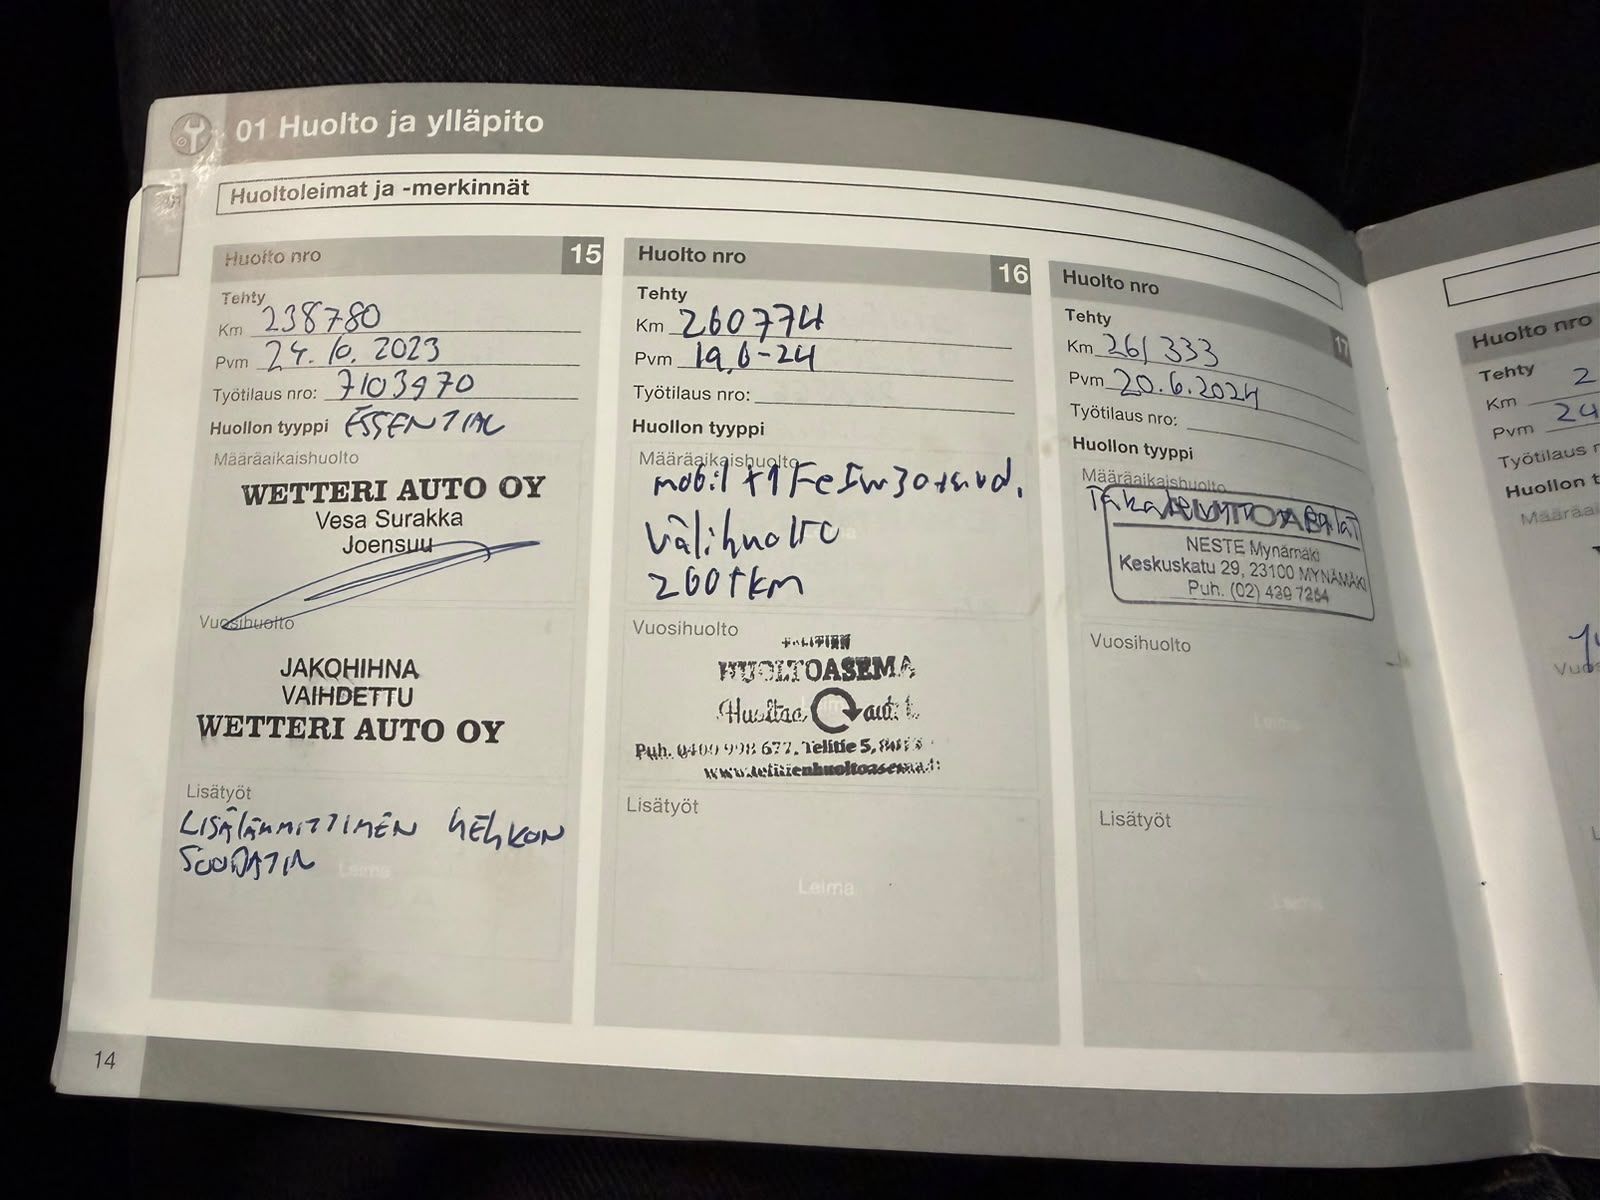 01 Huolto ja ylläpito
Huoltoleimat ja -merkinnät
Huolto nro 15
Tehty
Km 238780
Pvm 24.10.2023
Työtilaus nro: 7103970
Huollon tyyppi ESSENTIAL
Määräaikaishuolto
WETTERI AUTO OY
Vesa Surakka
Joensuu
Vuosihuolto
JAKOHIHNA
VAIHDETTU
WETTERI AUTO OY
Lisätyöt
LISÄLÄMMITTIMEN HEHKON
SUODATIN
Leima
Huolto nro 16
Tehty
Km 260774
Pvm 19.6-24
Työtilaus nro:
Huollon tyyppi
Määräaikaishuolto
mobil
Välihuolto
260tkm
Vuosihuolto
HUOLTOASEMA
Huoltaa
Puh. 0400 998 677, Telitie 5,
www.telitienhuoltoasema.fi
Lisätyöt
Leima
Huolto nro 17
Tehty
Km 261333
Pvm 20.6.2024
Työtilaus nro:
Huollon tyyppi
Määräaikaishuolto
NESTE Mynämäki
Keskuskatu 29, 23100 MYNÄMÄKI
Puh. (02) 439 7264
Vuosihuolto
Leima
Lisätyöt
Leima
14
Huolto nro
Tehty
Km 2
Pvm 24
Työtilaus
Huollon